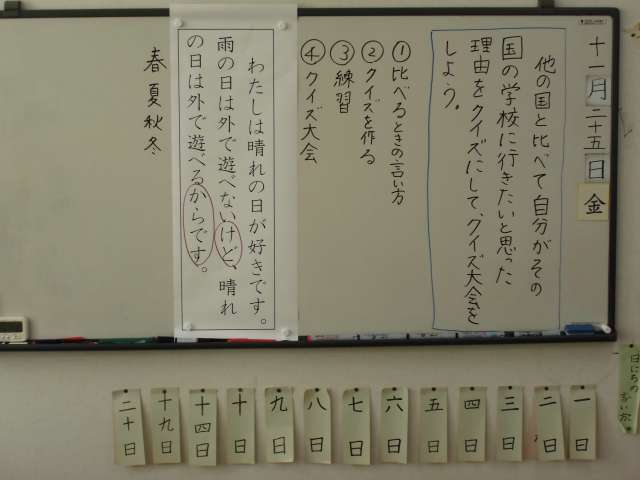 十一月二十五日金
他の国と比べて自分がその
国の学校に行きたいと思った
理由をクイズにして、クイズ大会を
しよう。
①比べるときの言い方
②クイズを作る
③練習
④クイズ大会
わたしは晴れの日が好きです。
雨の日は外で遊べないけど、晴れ
の日は外で遊べるからです。
春夏秋冬
一日
二日
三日
四日
五日
六日
七日
八日
九日
十日
十四日
十九日
二十日